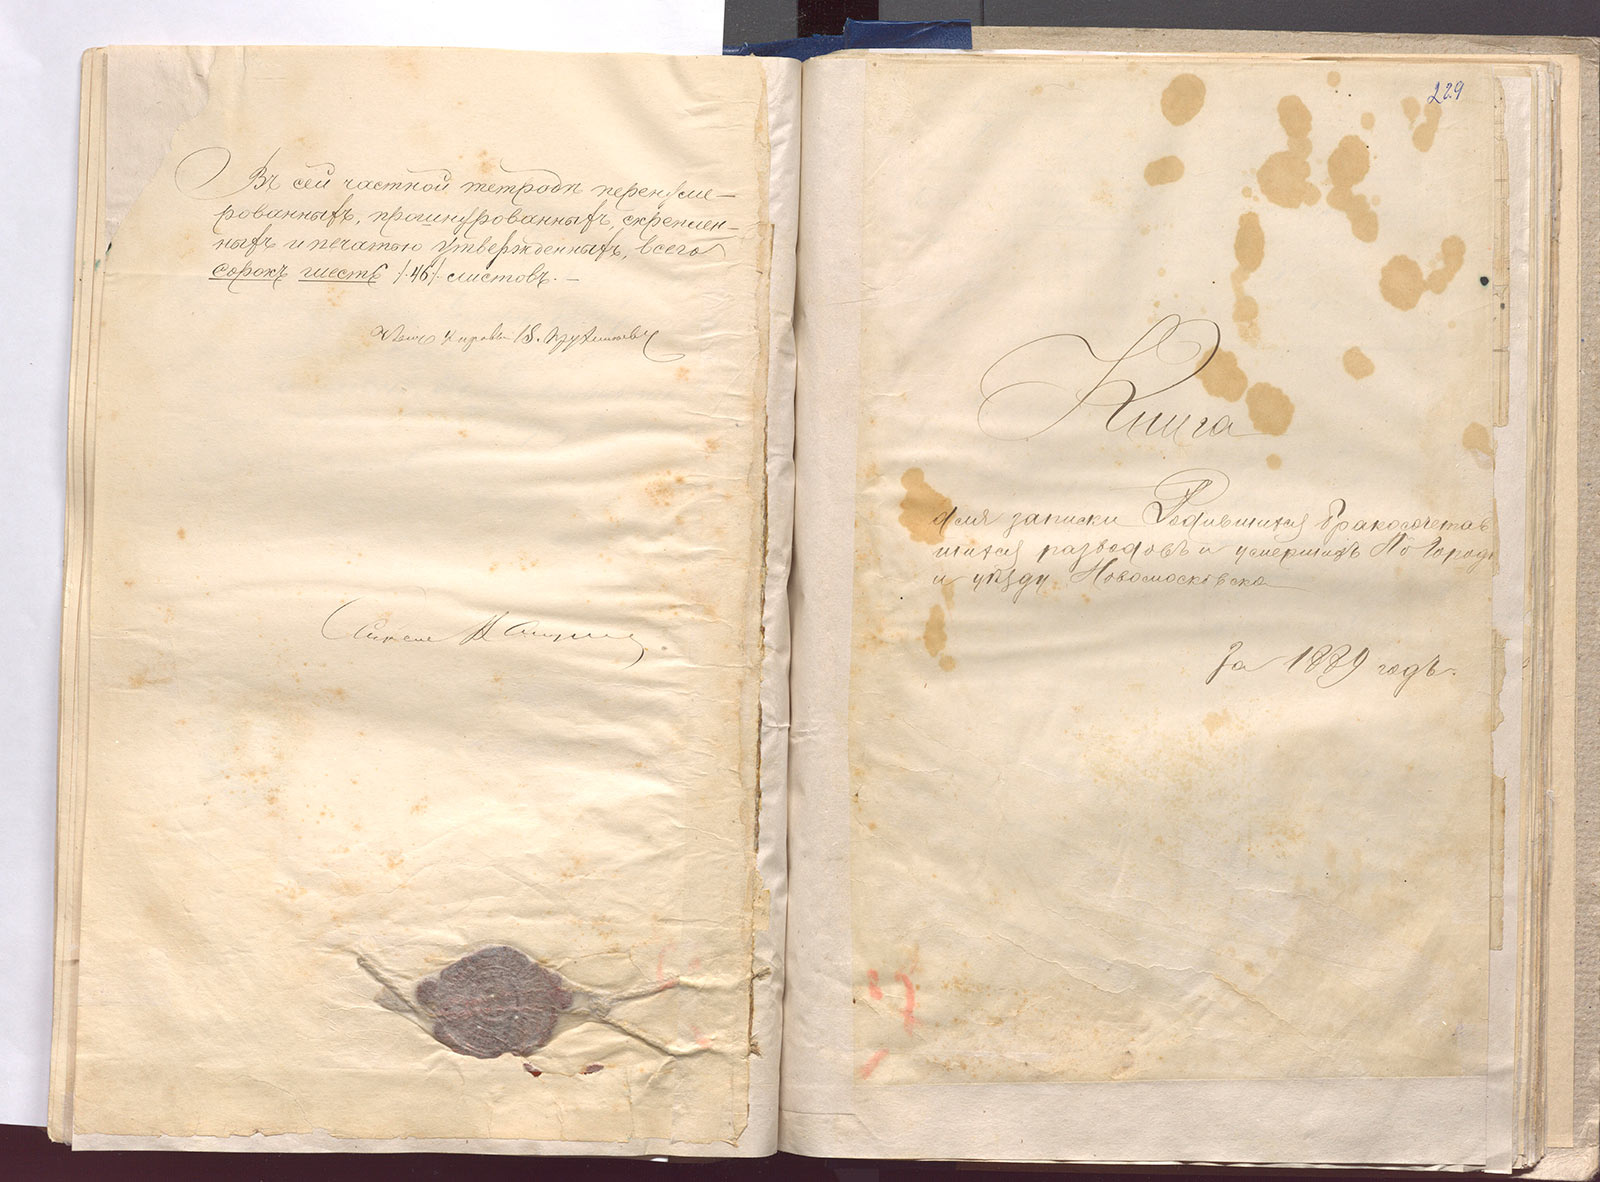 Въ сей частной тетради перенуме-
рованныхъ, прошнурованныхъ, скреплен-
ныхъ и печатью утвержденныхъ, всего
сорокъ шесть /46/ листовъ. —
229
Книга
для записки Родившихся бракосочетав
шихся разводовъ и умершихъ По Городу
и уѣзду Новомосковска
За 1889 годъ.